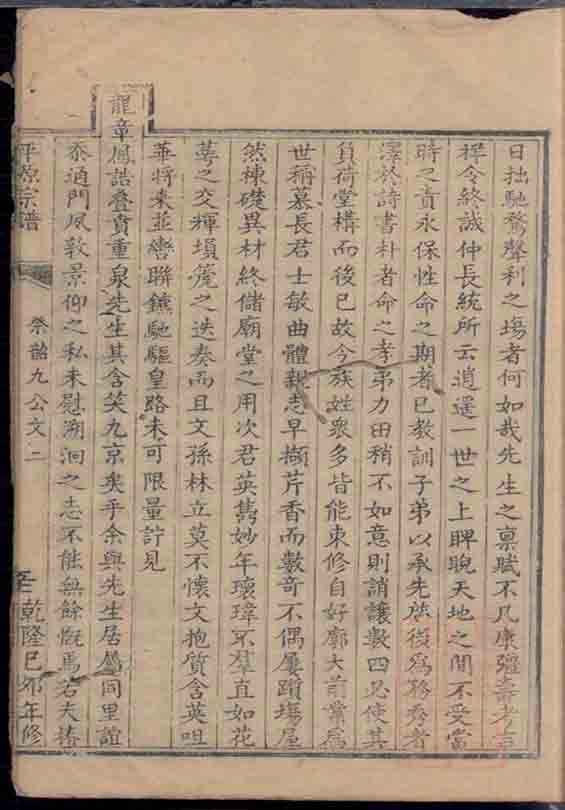 日拙馳騖聲利之塲者何如哉先生之禀賦不凡康彊壽考言
裎令終誠仲長統所云逍遥一世之上睥睨天地之間不受當
時之責永保性命之期者已教訓子弟以承先啟後為務秀者
澤於詩書朴者命之孝弟力田稍不如意則誚讓數四必使其
負荷堂構而後已故今族姓衆多皆能束修自好廓大前業為
世稱慕長君士敏曲體親志早擷芹香而數奇不偶屢躓塲屋
然棟礎異材終儲廟堂之用次君英雋妙年瓌瑋不羣直如花
萼之交輝塤箎之迭奏而且文孫林立莫不懷文抱質含英咀
華將來並轡聯鑣馳驅皇路未可限量詝見
龍章鳳誥叠賁重泉先生其含笑九京矣乎余與先生居屬同里誼
忝通門夙敦景仰之私未慰溯洄之志不能無餘慨焉若夫椿
平原宗谱 祭韶九公文二 乾隆己卯年修